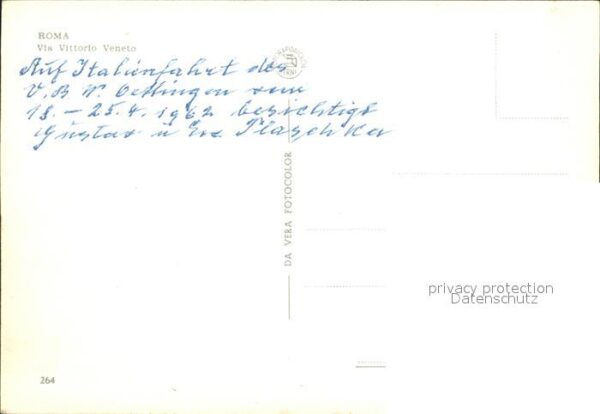 ROMA
Via Vittorio Veneto
Auf Italienfahrt des
V. B W. Oettingen vom
18. – 25.4. 1962 besichtigt
Gustav u Eva Plaschka
DA VERA FOTOCOLOR
privacy protection
Datenschutz
264